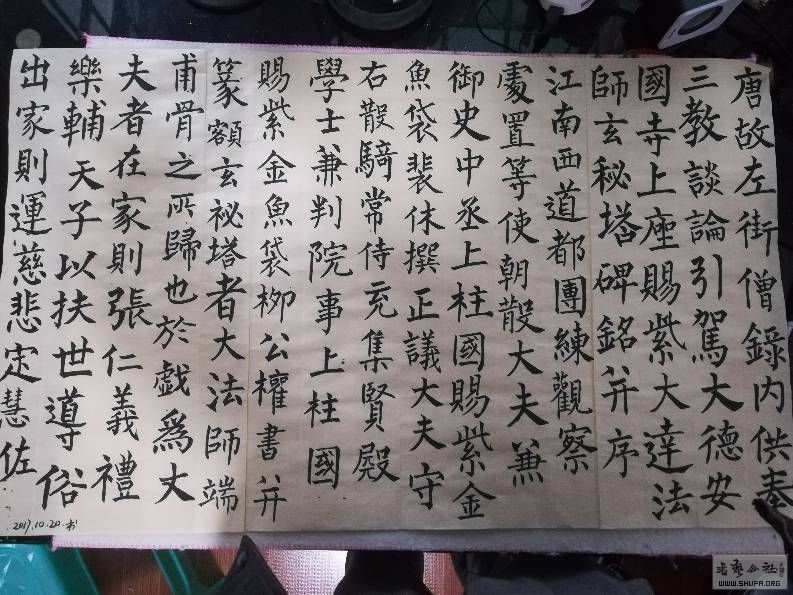 唐故左街僧錄內供奉
三教談論引駕大德安
國寺上座賜紫大達法
師玄秘塔碑銘并序
江南西道都團練觀察
處置等使朝散大夫兼
御史中丞上柱國賜紫金
魚袋裴休撰正議大夫守
右散騎常侍充集賢殿
學士兼判院事上柱國
賜紫金魚袋柳公權書并
篆額玄祕塔者大法師端
甫骨之所歸也於戲爲丈
夫者在家則張仁義禮
樂輔天子以扶世導俗
出家則運慈悲定慧佐
2017.10.20.书
WWW.SHUFA.ORG